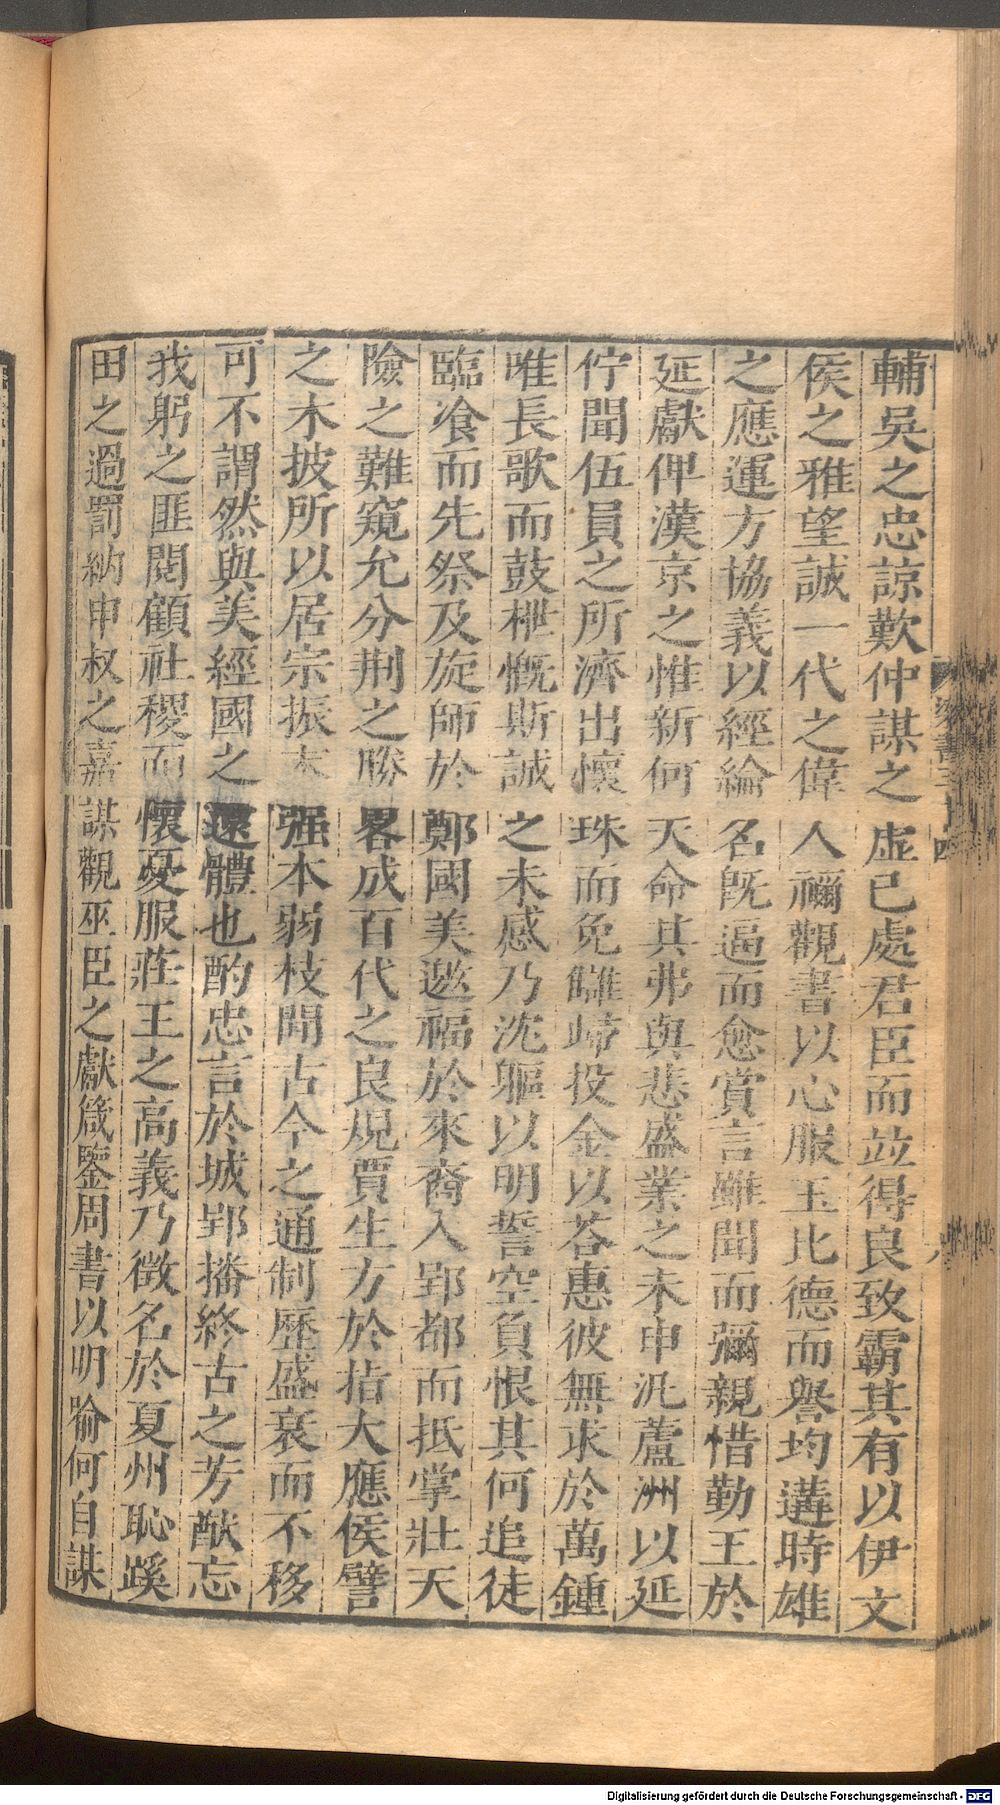 輔吳之忠諒歎仲謀之虛已處君臣而竝得良致霸其有以伊文
侯之雅望誠一代之偉人禰觀書以心服玉比德而譽均遘時雄
之應運方協義以經綸名旣逼而愈賞言雖聞而彌親惜勤王於
延獻俾漢京之惟新何天命其弗與悲盛業之未申汎蘆洲以延
佇聞伍員之所濟出懷珠而免讎歸投金以荅惠彼無求於萬鍾
唯長歌而鼓枻慨斯誠之未感乃沈軀以明誓空負恨其何追徒
臨飡而先祭及旋師於鄭國美邀福於來裔入郢都而抵掌壯天
險之難窺允分荆之勝畧成百代之良規賈生方於指大應侯譬
之木披所以居宗振末强本弱枝開古今之通制歷盛衰而不移
可不謂然與美經國之遠體也酌忠言於城郢播終古之芳猷忘
我躬之匪閱顧社稷而懷憂服莊王之高義乃徵名於夏州恥蹊
田之過罰納申叔之嘉謀觀巫臣之獻箴鑒周書以明喻何自謀
梁書三十四
Digitalisierung gefördert durch die Deutsche Forschungsgemeinschaft - DFG